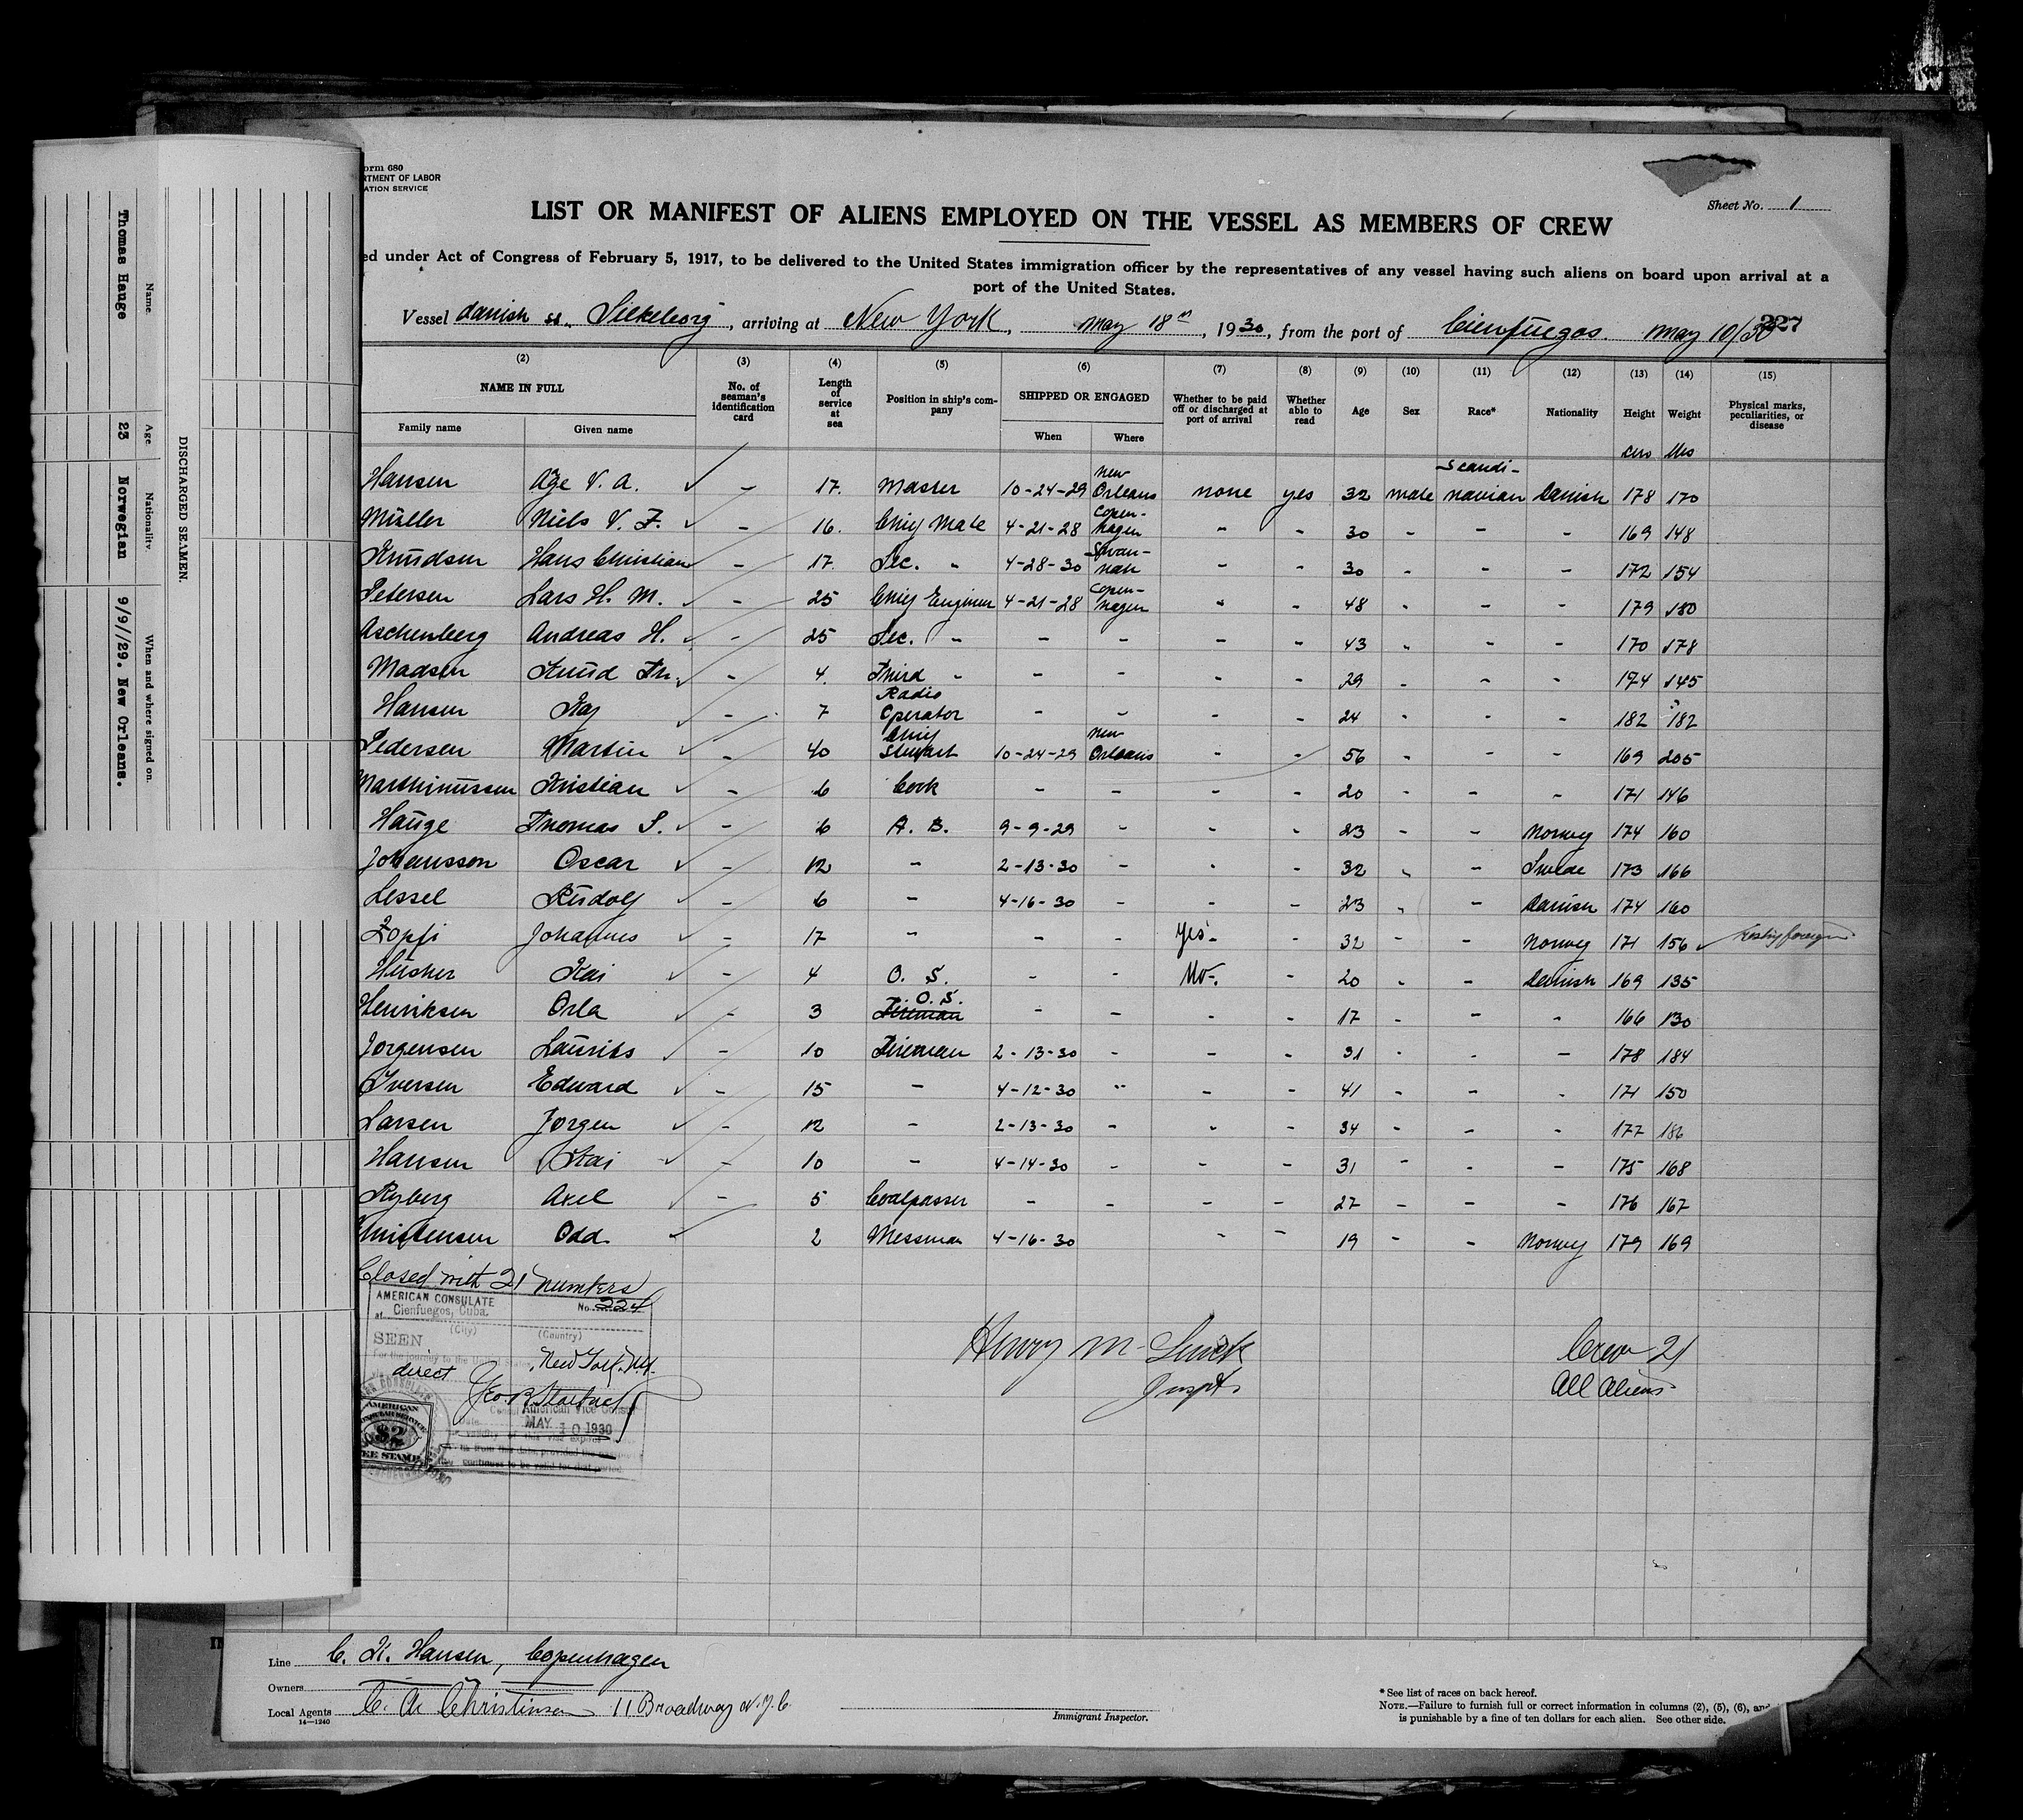 DISCHARGED SEAMEN.
Name. Age Nationality. When and where signed on.
Thomas Hauge 23 Norwegian 9/9//29. New Orleans.
orm 680
RTMENT OF LABOR
ATION SERVICE
Sheet No. 1
LIST OR MANIFEST OF ALIENS EMPLOYED ON THE VESSEL AS MEMBERS OF CREW
ed under Act of Congress of February 5, 1917, to be delivered to the United States immigration officer by the representatives of any vessel having such aliens on board upon arrival at a
port of the United States.
Vessel Danish ss. Silkeborg, arriving at New York, May 18th, 1930, from the port of Cienfuegos. May 10/30
227
(2) (3) (4) (5) (6) (7) (8) (9) (10) (11) (12) (13) (14) (15)
NAME IN FULL No. of seaman's identification card Length of service at sea Position in ship's company SHIPPED OR ENGAGED Whether to be paid off or discharged at port of arrival Whether able to read Age Sex Race* Nationality Height Weight Physical marks, peculiarities, or disease
Family name Given name When Where
cms lbs
Hansen Åge V. A. - 17. Master 10-24-29 New Orleans none yes 32 male Scandi-navian Danish 178 170
Müller Niels V. F. - 16. Chief Mate 4-21-28 Copen-hagen - - 30 - - - 169 148
Knudsen Hans Christian - 17. Sec. - 4-28-30 Savan-nah - - 30 - - - 172 154
Petersen Lars H. M. - 25 Chief Engineer 4-21-28 Copen-hagen - - 48 - - - 179 180
Aschenberg Andreas H. - 25 Sec. - - - - - 43 - - - 170 178
Madsen Knud Kr. - 4. Third - - - - - 29 - - - 174 145
Hansen Kaj - 7 Radio Operator - - - - 24 - - - 182 182
Pedersen Martin - 40 Chief Stewart 10-24-29 New Orleans - - 56 - - - 169 205
Marthinussen Kristian - 6 Cook - - - - 20 - - - 171 146
Hauge Thomas S. - 6 A. B. 9-9-29 - - - 23 - - Norweg 174 160
Johansson Oscar - 12 - 2-13-30 - - - 32 - - Swede 173 166
Lessel Rudolf - 6 - 4-16-30 - - - 23 - - Danish 174 160
Zopfi Johannes - 17 - - - Yes - 32 - - Norweg 171 156
Hüsher Kai - 4 O. S. - - No - 20 - - Danish 169 135
Henriksen Orla - 3 O. S. Fireman - - - - 17 - - - 166 130
Jorgensen Laurits - 10 Fireman 2-13-30 - - - 31 - - - 178 184
Iversen Edward - 15 - 4-12-30 - - - 41 - - - 171 150
Larsen Jorgen - 12 - 2-13-30 - - - 34 - - - 177 186
Hansen Kai - 10 - 4-14-30 - - - 31 - - - 175 168
Ryberg Axel - 5 Coalpasser - - - - 27 - - - 176 167
Christensen Odd. 2 Messman 4-16-30 - - 19 - - Norweg 179 169
Closed with 21 numbers
AMERICAN CONSULATE
No. 224
at Cienfuegos, Cuba.
(City) (Country)
SEEN
For the journey to the United States
direct New York, N.Y.
American Vice Consul
Date MAY 10 1930
AMERICAN
$2
FEE STAMP
continues to be valid for that period
Henry M.
Inspt.
Crew 21
All aliens
Line C. K. Hansen, Copenhagen
Owners
Local Agents C. A. Christensen 11 Broadway N.Y.C
14—1240
Immigrant Inspector.
*See list of races on back hereof.
NOTE.—Failure to furnish full or correct information in columns (2), (5), (6), and
is punishable by a fine of ten dollars for each alien. See other side.